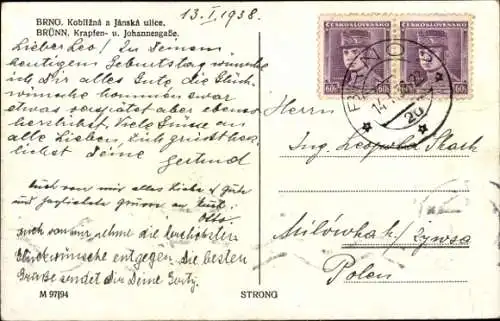 13.I.1938.
BRNO. Kobližná a Jánská ulice.
BRÜNN. Krapfen- u. Johannengaße.
Lieber Leo! Zu Deinem
heutigen Geburtstag wünsche
ich Dir alles Gute die Glück-
wünsche kommen zwar
etwas verspätet aber ebenso
herzlichst. Viele Grüsse an
alle Lieben, herz-
lichst Deine
Gertrud
Auch von mir alles Liebe & Gute
und herzlichste Grüsse an Euch
Otto.
Auch von mir nehme die herzlichsten
Glückwünsche entgegen. Die besten
Grüße sendet Dir Deine
M 97/94
STRONG
ČESKOSLOVENSKO
ČESKOSLOVENSKO
60h
60h
BRNO
2
Herrn
Ing. Leopold
Milówka k/ Żywca
Polen